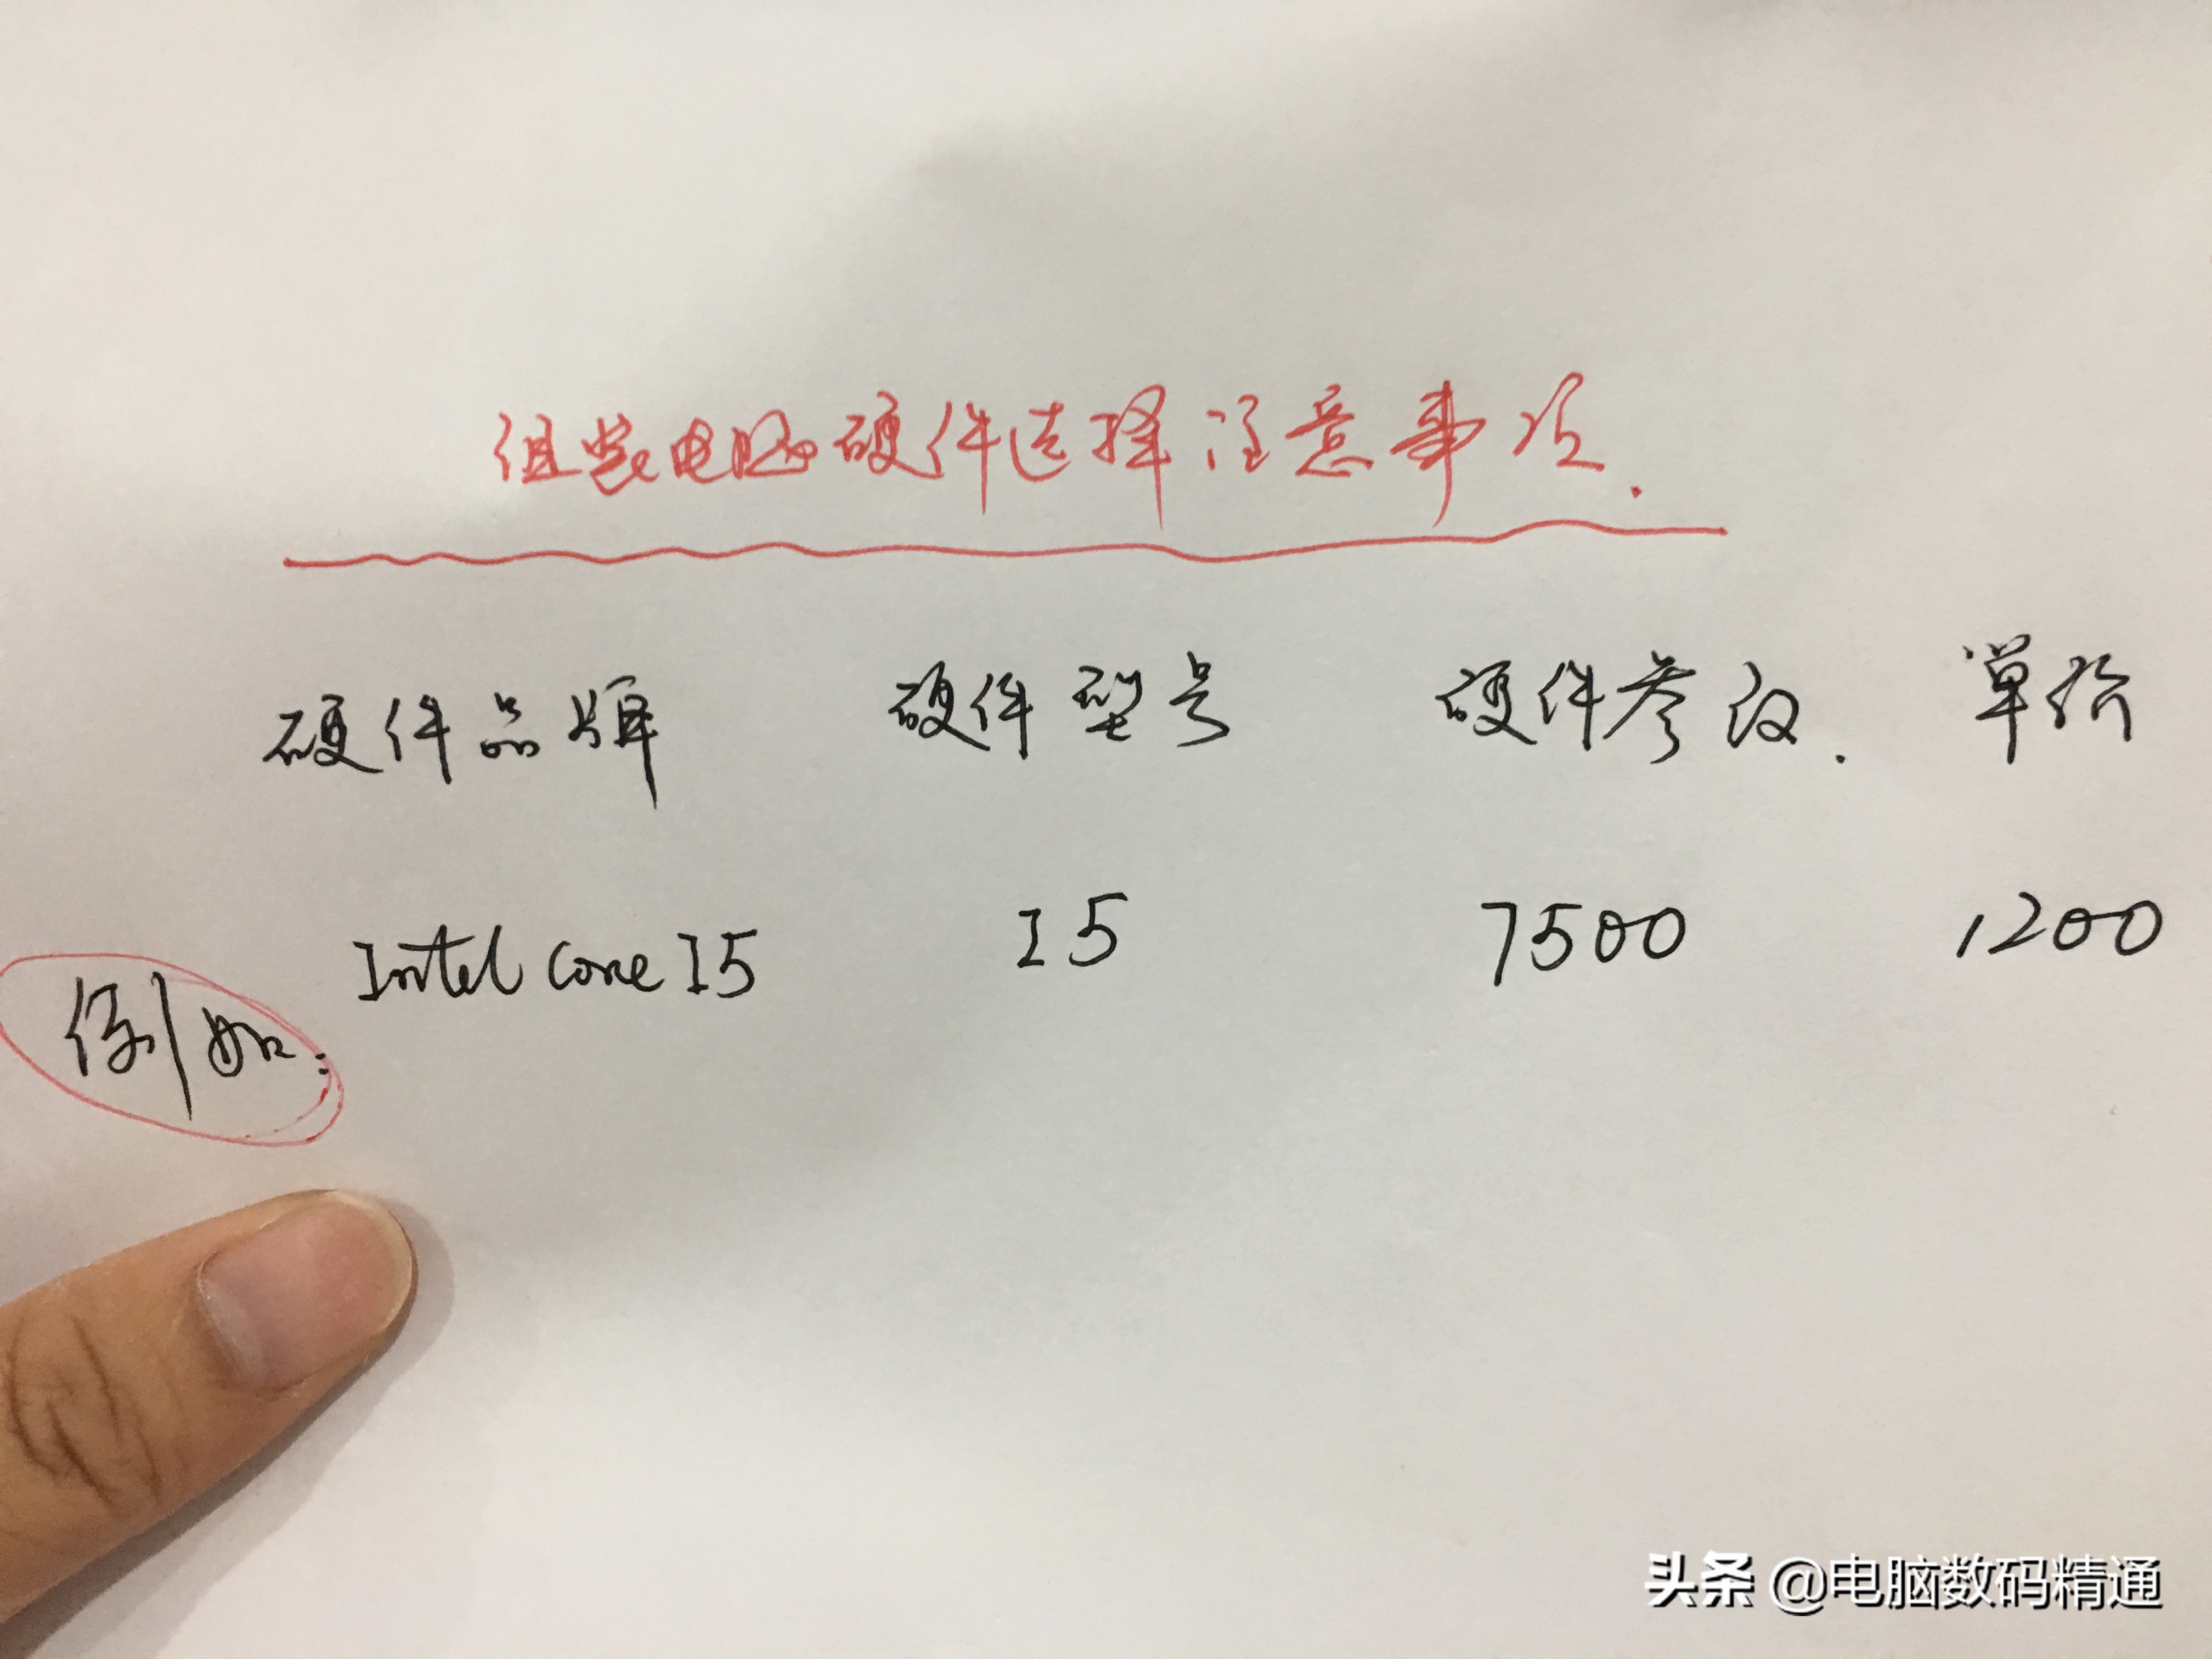 组装电脑硬件选择注意事项.
硬件品牌 硬件型号 硬件参数. 单价
例如: Intel Core I5 I5 7500 1200
头条 @电脑数码精通